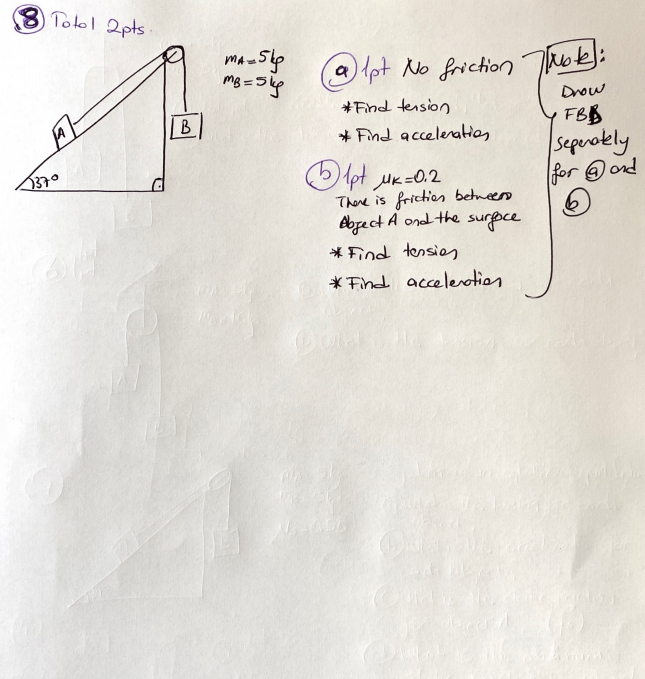 8 Total 2pts.
mA = 5kg
mB = 5kg
A
B
37°
a 1pt No friction
*Find tension
* Find acceleration
b 1pt μK=0.2
There is friction between
object A and the surface
* Find tension
* Find acceleration
Note:
Draw
FBD
seperately
for a and
b